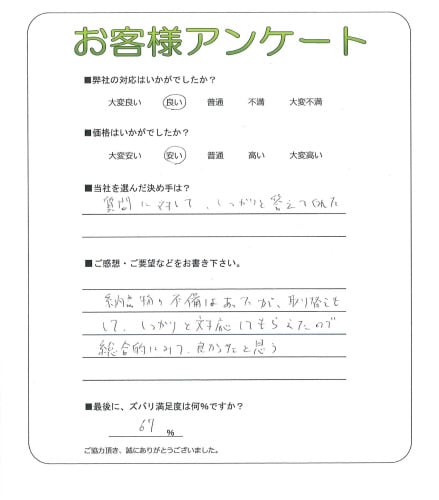 お客様アンケート
■弊社の対応はいかがでしたか？
大変良い 良い 普通 不満 大変不満
■価格はいかがでしたか？
大変安い 安い 普通 高い 大変高い
■当社を選んだ決め手は？
質問に対して、しっかりと答えてくれた
■ご感想・ご要望などをお書き下さい。
納品物の不備はあったが、取り替えも
して、しっかりと対応してもらえたので
総合的にみて、良かったと思う
■最後に、ズバリ満足度は何%ですか？
67 %
ご協力頂き、誠にありがとうございました。